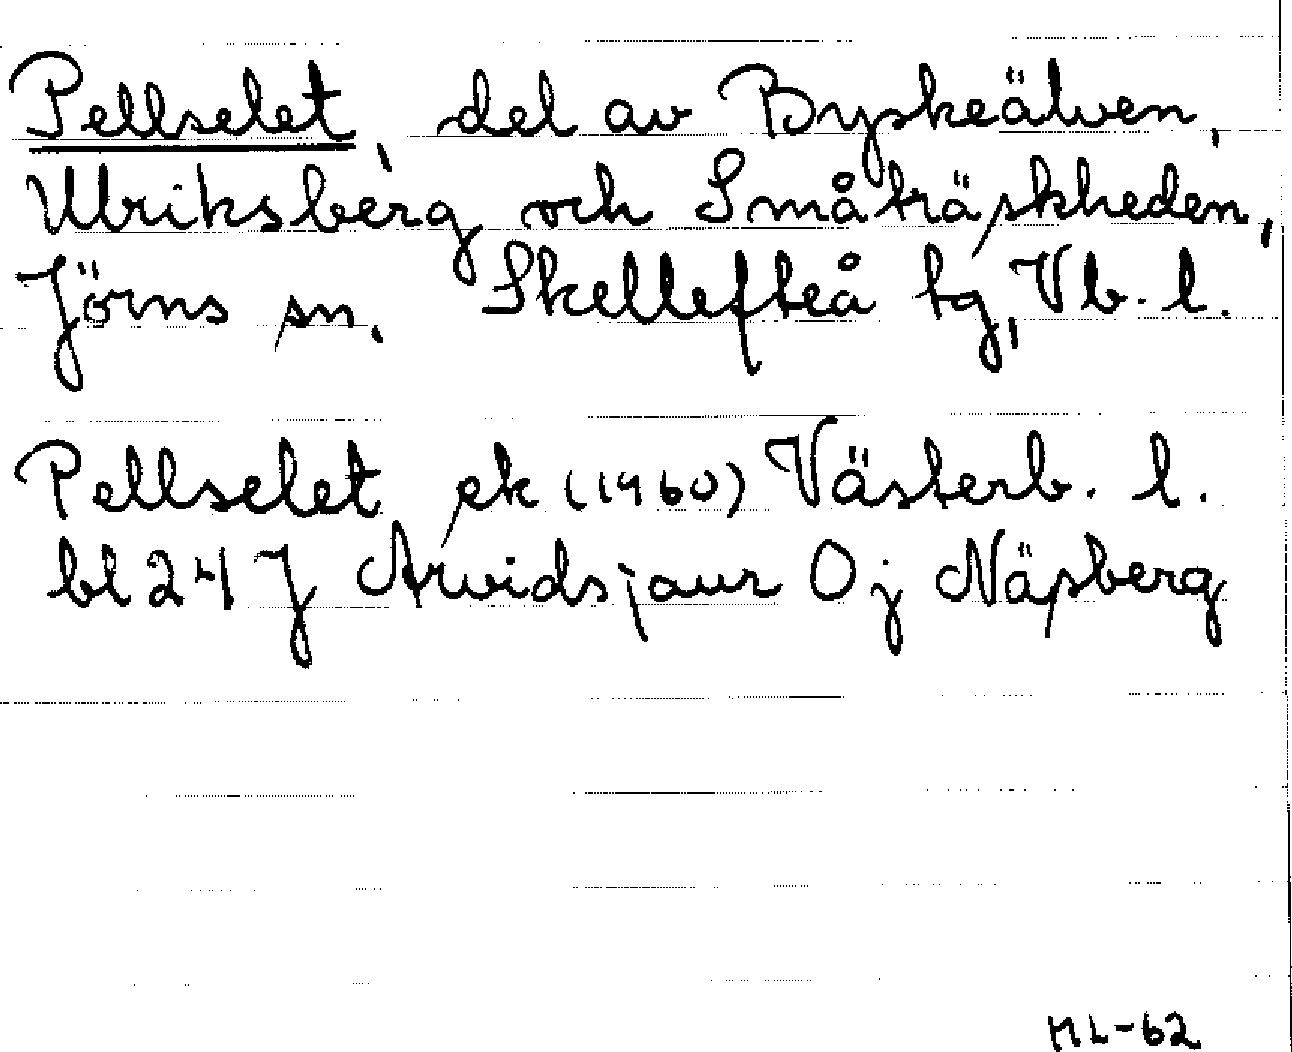 Pellselet, del av Byskeälven,
Ulriksberg och Småträskheden,
Jörns sn. Skellefteå tg, Vb. l.
Pellselet ek (1960) Västerb. l.
bl 24 J Arvidsjaur Oj Näsberg
ML-62